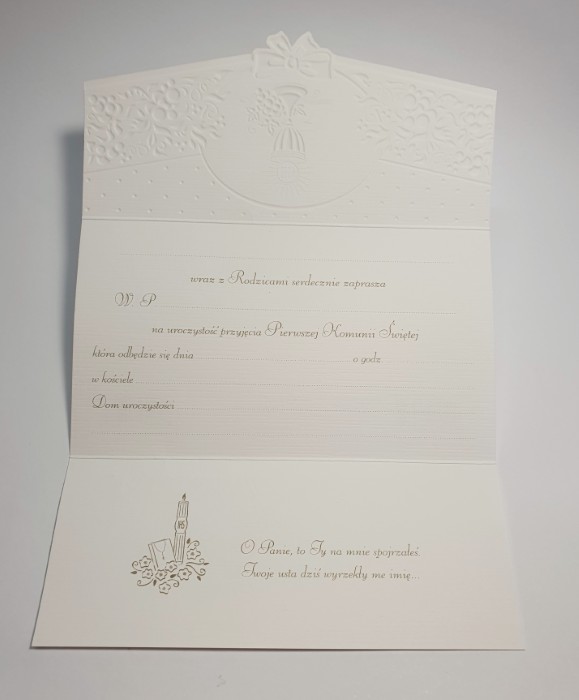 wraz z Rodzicami serdecznie zaprasza
W. P.
na uroczystość przyjęcia Pierwszej Komunii Świętej
która odbędzie się dnia o godz.
w kościele
Dom uroczystości
O Panie, to Ty na mnie spojrzałeś,
Twoje usta dziś wyrzekły me imię...